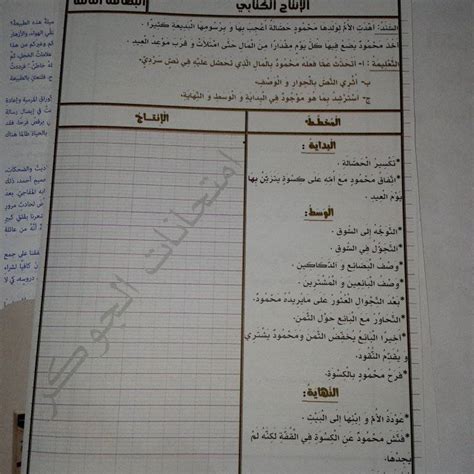 الإنتاج الكتابي
السَّنَدُ: أَهْدَتِ الأُمُّ لِوَلَدِهَا مَحْمُودٍ حَصَّالَةً أُعْجِبَ بِهَا وَ بِرُسُومِهَا البَدِيعَةِ كَثِيرًا.
أَخَذَ مَحْمُودٌ يَضَعُ فِيهَا كُلَّ يَوْمٍ مِقْدَارًا مِنَ المَالِ حَتَّى امْتَلَأَتْ وَ قَرُبَ مَوْعِدُ العِيدِ.
التَّعْلِيمَةُ: ا- أَتَحَدَّثُ عَمَّا فَعَلَهُ مَحْمُودٌ بِالمَالِ الَّذِي تَحَصَّلَ عَلَيْهِ فِي نَصٍّ سَرْدِيٍّ.
ب- أُثْرِي النَّصَّ بِالحِوَارِ وَ الوَصْفِ.
ج- أَسْتَرْشِدُ بِمَا هُوَ مَوْجُودٌ فِي البِدَايَةِ وَ الوَسَطِ وَ النِّهَايَةِ.
المُخَطَّطُ
الإِنْتَاجُ
البِدَايَةُ:
*تَكْسِيرُ الحَصَّالَةِ.
*اتِّفَاقُ مَحْمُودٍ مَعَ أُمِّهِ عَلَى كِسْوَةٍ يَتَزَيَّنُ بِهَا
يَوْمَ العِيدِ.
الوَسَطُ:
*التَّوَجُّهُ إِلَى السُّوقِ.
*التَّجَوُّلُ فِي السُّوقِ.
*وَصْفُ البَضَائِعِ وَ الدَّكَاكِينِ.
*وَصْفُ البَائِعِينَ وَ المُشْتَرِينَ.
*بَعْدَ التَّجْوَالِ العُثُورُ عَلَى مَايُرِيدُهُ مَحْمُودٌ.
*التَّحَاوُرُ مَعَ البَائِعِ حَوْلَ الثَّمَنِ.
*أَخِيرًا البَائِعُ يُخَفِّضُ الثَّمَنَ وَمَحْمُودٌ يَشْتَرِي
وَ يُقَدِّمُ النُّقُودَ.
*فَرَحُ مَحْمُودٍ بِالكِسْوَةِ.
النِّهَايَةُ:
*عَوْدَةُ الأُمِّ وَ ابْنِهَا إِلَى البَيْتِ.
*فَتَّشَ مَحْمُودٌ عَنِ الكِسْوَةِ فِي القُفَّةِ لَكِنَّهُ لَمْ
يَجِدْهَا.
امتحانات الجوكر